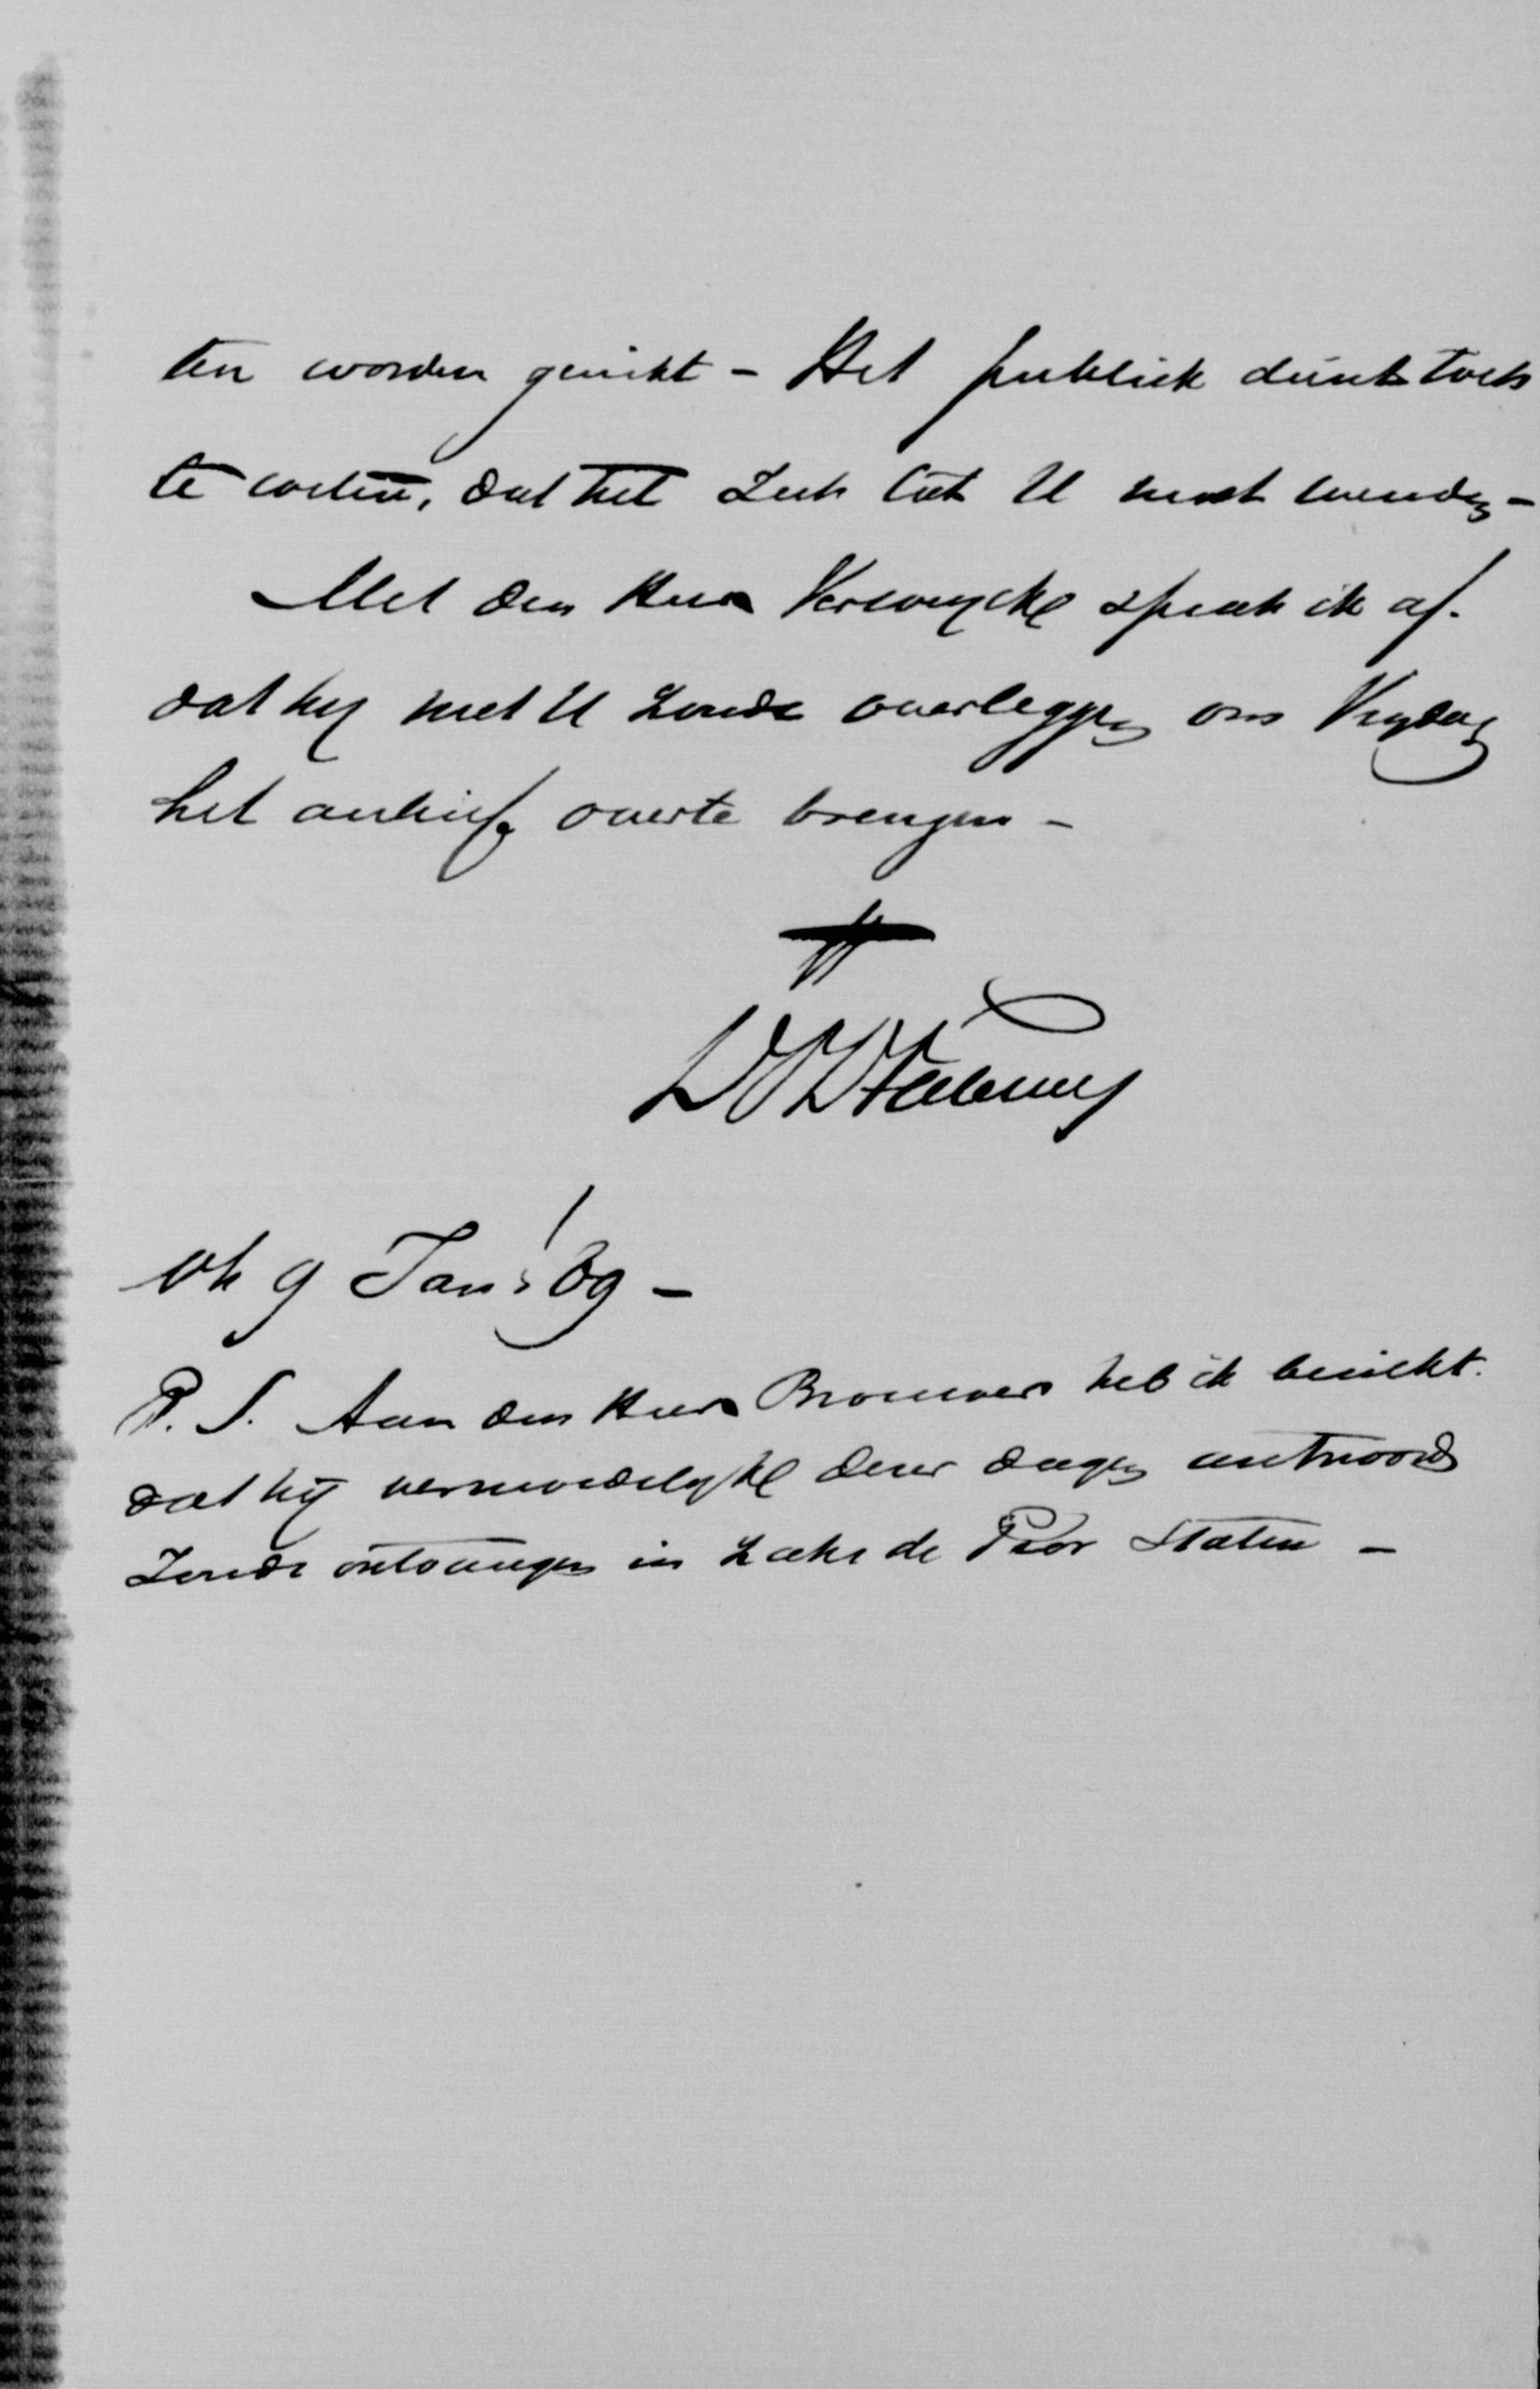 ten worden gericht - Het publiek dient toch
te weten, dat het zich tot U moet wenden -
Met den Heer Verwycke sprak ik af.
dat hij met U zoude overleggen om Vrydag
het archief over te brengen -
uk 9 Jan: '89 -
P. S. Aan den Heer Brouwers heb ik bericht.
dat hij vermoedelyke dezer dagen antwoord
Zoude ontvangen in zake de Prov Staten -